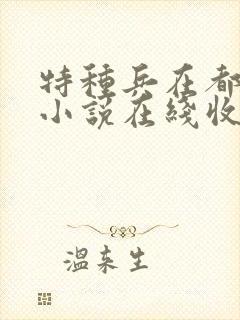 特種兵在都
小說在綫收
溫來生